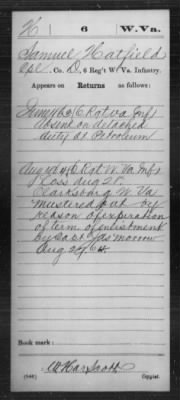 H | 6 | W. Va.
Samuel Hatfield
Cpl., Co. D, 6 Reg't W. Va. Infantry.
Appears on Returns as follows:
June 1862 (6 Rgt Va Inf)
Absent on detached
duty at Petroleum
Aug 1864 (6 Rgt W. Va. Inf)
Loss Aug 28.
Clarksburg W. Va
mustered out by
reason of expiration
of term of enlistment
by Capt Jas Morrow
Aug 28/64.
Book mark:
(546)
Copyist.